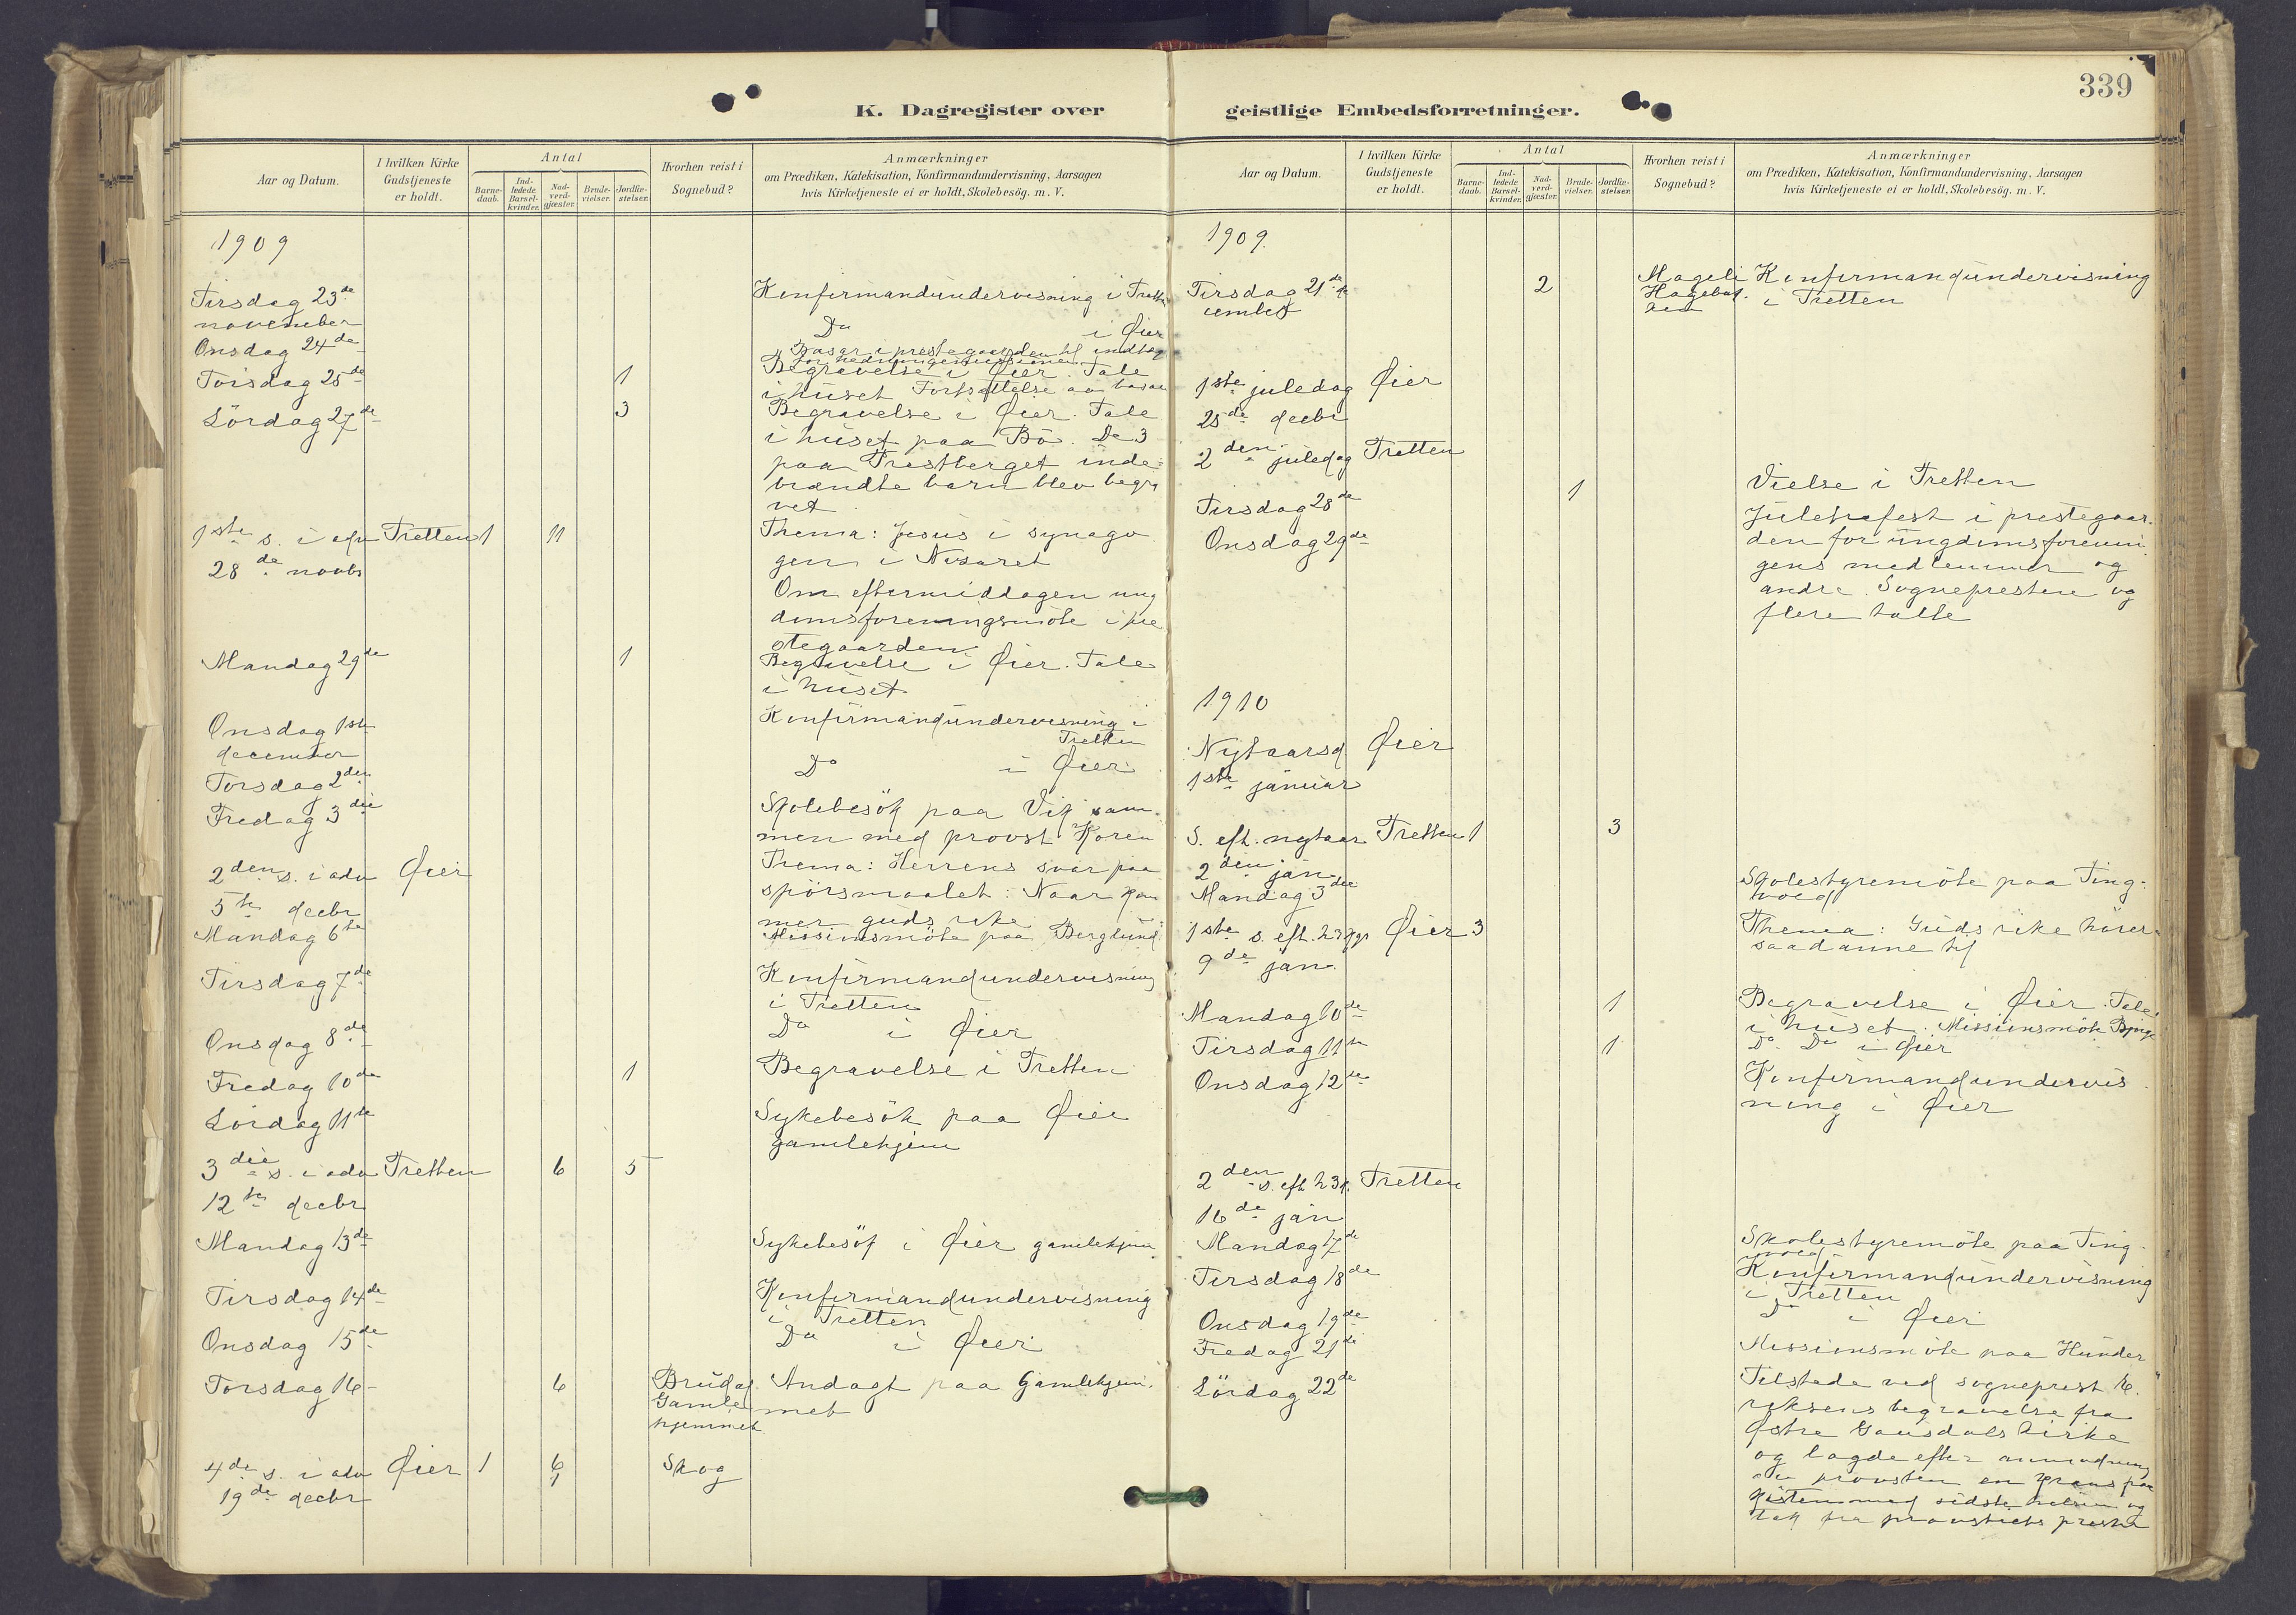 339
K. Dagregister over geistlige Embedsforretninger.
Aar og Datum.
I hvilken Kirke Gudstjeneste er holdt.
Antal
Barne-daab.
Ind-ledede Barsel-kvinder.
Nad-verd-gjæster.
Brude-vielser.
Jordfæ-stelser.
Hvorhen reist i Sognebud?
Anmærkninger
om Prædiken, Katekisation, Konfirmandundervisning, Aarsagen
hvis Kirketjeneste ei er holdt, Skolebesög. m. V.
1909
Tirsdag 23de Konfirmandundervisning i Tretten
november
Onsdag 24de Do i Øier
Basar i prestegaarden til indtægt
for hedningemissionen
Torsdag 25de 1 Begravelse i Øier. Tale
i huset Fortsættelse av basar
Lördag 27de 3 Begravelse i Øier. Tale
i huset paa Bö. De 3
paa Prestberget inde
brændte barn blev begra
vet
1ste s. i adv Tretten 1 11 Thema: Jesus i synago
28de novbr gen i Nasaret
Om eftermiddagen ung
domsforeningsmöte i pre
stegaarden
Mandag 29de 1 Begravelse i Øier. Tale
i huset
Onsdag 1ste Konfirmandundervisning i
december Tretten
Torsdag 2den Do i Øier
Fredag 3die Skolebesök paa Vik sam-
men med provst Koren
2den s. i adv Øier Thema: Herrens svar paa
5te decbr spörsmaalet: Naar kom
mer guds rike
Mandag 6te Missionsmöte paa Berglund
Tirsdag 7de Konfirmandundervisning
i Tretten
Onsdag 8de Do i Øier
Fredag 10de 1 Begravelse i Tretten
Lördag 11te Sykebesök paa Øier
gamlehjem
3die s. i adv Tretten 6 5
12te decbr
Mandag 13de Sykebesök i Øier gamlehjem
Tirsdag 14de Konfirmandundervisning
i Tretten
Onsdag 15de Do i Øier
Torsdag 16- 6 Brudal Andagt paa Gamlehjem-
Gamle met
hjemmet
4de s. i adv Øier 1 6 Skog
19de decbr 1
Aar og Datum.
I hvilken Kirke Gudstjeneste er holdt.
Antal
Barne-daab.
Ind-ledede Barsel-kvinder.
Nad-verd-gjæster.
Brude-vielser.
Jordfæ-stelser.
Hvorhen reist i Sognebud?
Anmærkninger
om Prædiken, Katekisation, Konfirmandundervisning, Aarsagen
hvis Kirketjeneste ei er holdt, Skolebesög. m. V.
1909.
Tirsdag 21de de 2 Mageli Konfirmandundervisning
cember i Tretten
1ste juledag Øier
25de decbr
2den juledag Tretten
Tirsdag 28de 1 Vielse i Tretten
Onsdag 29de Juletræfest i prestegaar-
den for ungdomsforenin
gens medlemmer og
andre. Sognepresten og
flere talte
1910
Nytaarsd Øier
1ste januar
S. eft. nytaar Tretten 1 3
2den jan
Mandag 3die Skolestyremöte paa Ting-
vold
1ste s. eft. h3kgr Øier 3 Thema: Guds rike hörer
9de jan. saadanne til
Mandag 10de 1 Begravelse i Øier. Tale
i huset. Missionsmöte
Tirsdag 11te 1 Do Do i Øier
Onsdag 12te Konfirmandundervis
ning i Øier
2den s. eft h3k. Tretten
16de jan
Mandag 17de Skolestyremöte paa Ting-
vold
Tirsdag 18de Konfirmandundervisning
i Tretten
Onsdag 19de Do i Øier
Fredag 21de Missionsmöte paa Hunder
Lördag 22de Tilstede ved sogneprest
riksens begravelse fra
Østre Gausdals kirke
og lagde efter anmodning
av provsten en krans paa
kisten med sidste hilsen og
tak fra provstiets prester